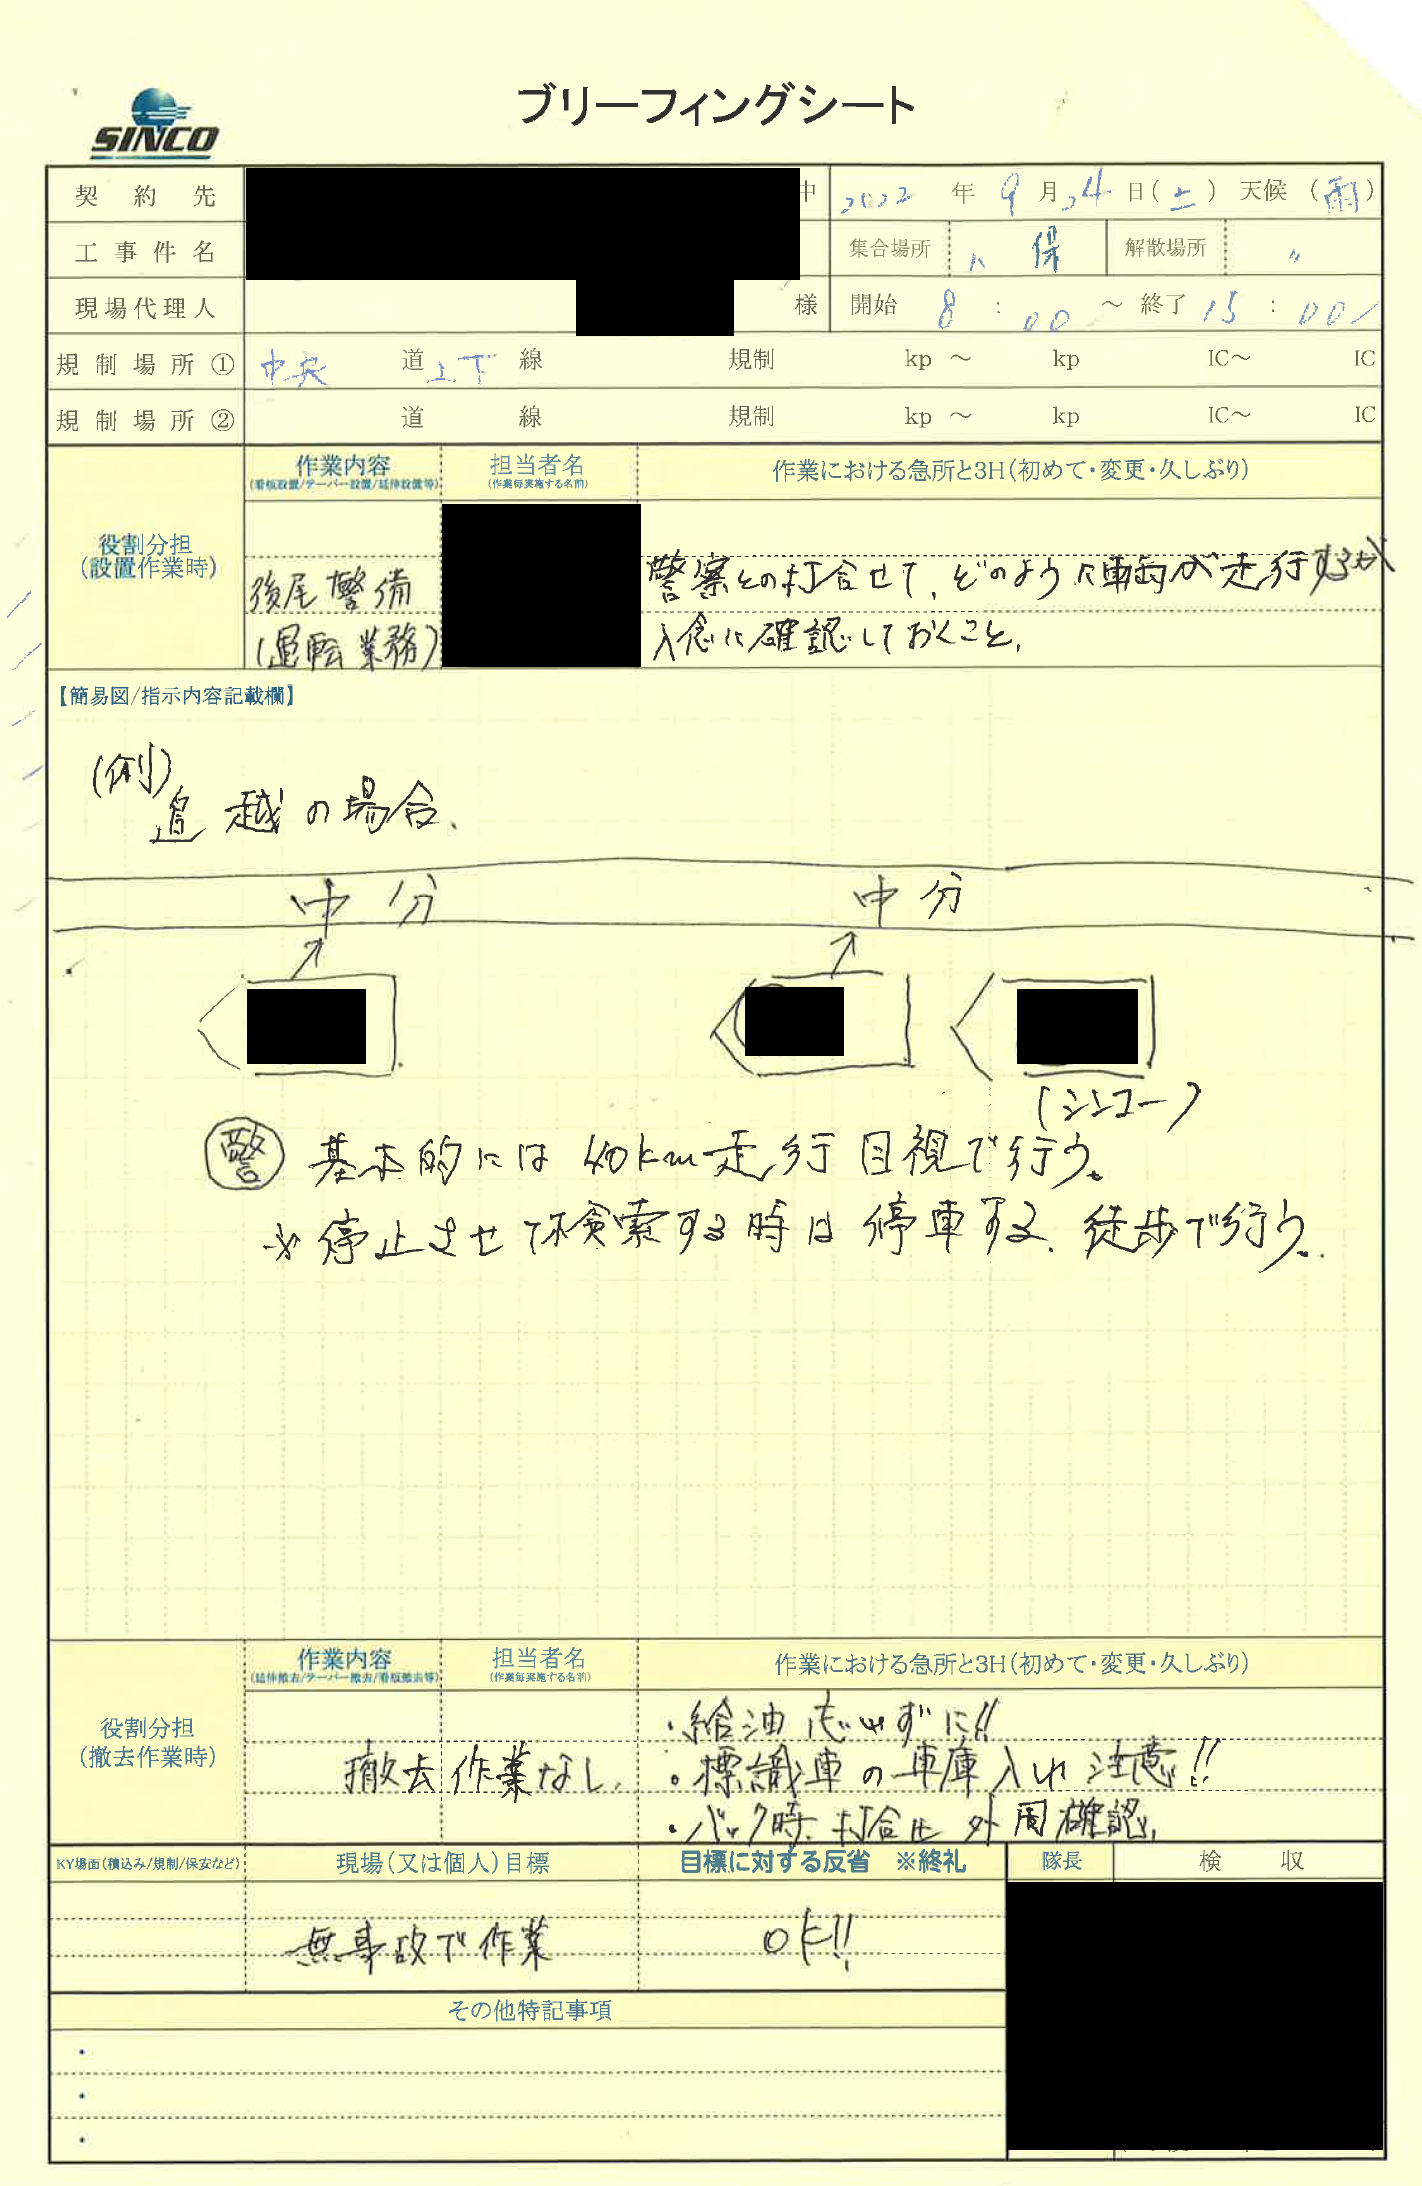 ブリーフィングシート
SINCO
契約先 中 2022年9月24日(土) 天候(雨)
工事件名 集合場所 八保 解散場所 〃
現場代理人 様 開始 8:00 ~ 終了 15:00
規制場所① 中央道 上下線 規制 kp ~ kp IC~ IC
規制場所② 道 線 規制 kp ~ kp IC~ IC
役割分担
(設置作業時)
作業内容
(看板設置/テーパー設置/延伸設置等)
担当者名
(作業毎実施する名前)
作業における急所と3H(初めて・変更・久しぶり)
後尾警備
(運転業務)
警察との打合せで、どのように車両が走行するか
入念に確認しておくこと。
【簡易図/指示内容記載欄】
(例)
追越の場合、
中分 中分
(シンコー)
警 基本的には40km走行 目視で行う。
※停止させて検索する時は停車する、徒歩で行う。
役割分担
(撤去作業時)
作業内容
(延伸撤去/テーパー撤去/看板撤去等)
担当者名
(作業毎実施する名前)
作業における急所と3H(初めて・変更・久しぶり)
撤去作業なし。
・給油忘れずに!!
・標識車の車庫入れ注意!!
・バック時、打合せ 外周確認。
KY場面(積込み/規制/保安など) 現場(又は個人)目標 目標に対する反省 ※終礼 隊長 検収
無事故で作業 OK!!
その他特記事項
・
・
・